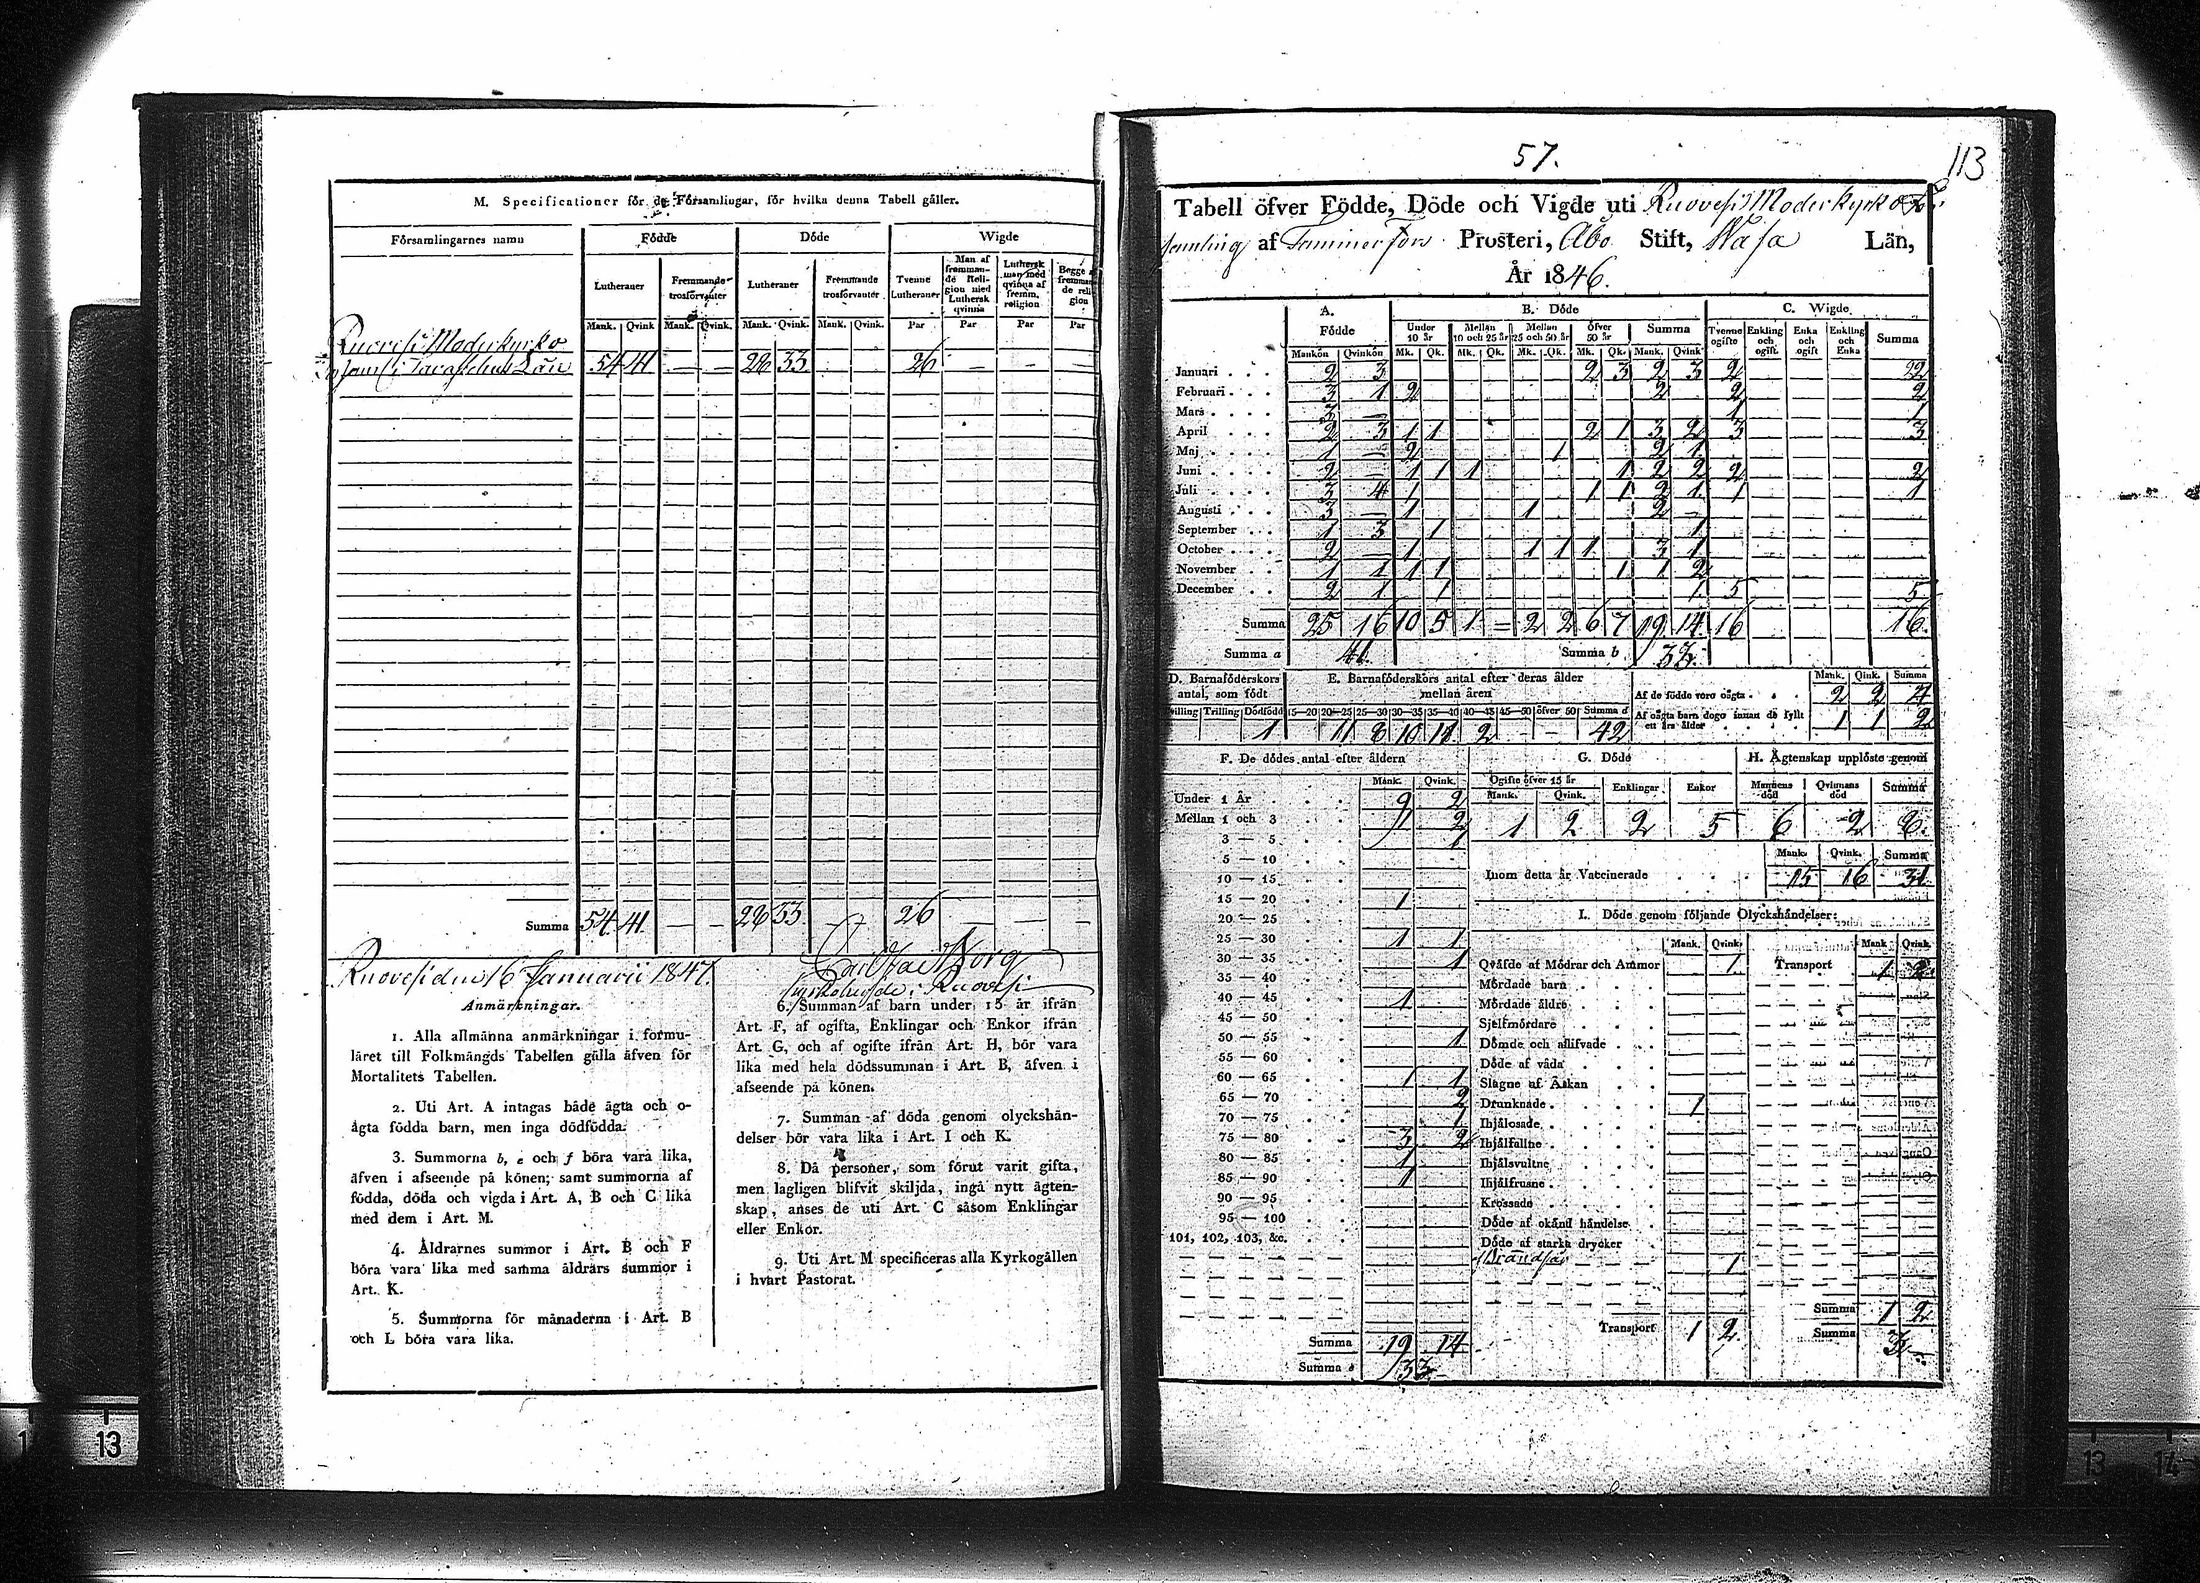 M. Specificationer för de Församlingar, för hvilka denna Tabell gäller.
Församlingarnes namn Födde Döde Wigde
Lutheraner Fremmande trosförvanter Lutheraner Fremmande trosförvanter Tvenne Lutheraner Man af fremmande Religion med Luthersk qvinna Luthersk man med qvinna af fremm. religion Begge fremmande religion
Mank. Qvink Mank. Qvink. Mank. Qvink. Mank. Qvink. Par Par Par Par
Ruovesi Moderkyrko
54 41 — — 28 33 26 — — —
Summa 54 41 — — 28 33 — 26 — — —
Ruovesi den 16 Januarii 1847.
Kyrkoherde i Ruovesi
Anmärkningar.
1. Alla allmänna anmärkningar i formu-
läret till Folkmängds Tabellen gälla äfven för
Mortalitets Tabellen.
2. Uti Art. A intagas både ägta och o-
ägta födda barn, men inga dödfödda.
3. Summorna b, e och f böra vara lika,
äfven i afseende på könen; samt summorna af
födda, döda och vigda i Art. A, B och C lika
med dem i Art. M.
4. Åldrarnes summor i Art. B och F
böra vara lika med samma åldrars summor i
Art. K.
5. Summorna för månaderna i Art. B
och L böra vara lika.
6. Summan af barn under 15 år ifrån
Art. F, af ogifta, Enklingar och Enkor ifrån
Art. G, och af ogifte ifrån Art. H, bör vara
lika med hela dödssumman i Art. B, äfven i
afseende på könen.
7. Summan af döda genom olyckshän-
delser bör vara lika i Art. I och K.
8. Då personer, som förut varit gifta,
men lagligen blifvit skiljda, ingå nytt ägten-
skap, anses de uti Art. C såsom Enklingar
eller Enkor.
9. Uti Art. M specificeras alla Kyrkogällen
i hvart Pastorat.
57.
113
Tabell öfver Födde, Döde och Vigde uti Ruovesi Moderkyrko För-
samling af Tammerfors Prosteri, Åbo Stift, Wasa Län,
År 1846.
A. Födde B. Döde C. Wigde
Under 10 år Mellan 10 och 25 år Mellan 25 och 50 år Öfver 50 år Summa Tvenne ogifte Enkling och ogift. Enka och ogift Enkling och Enka Summa
Mankön Qvinkön Mk. Qk. Mk. Qk. Mk. Qk. Mk. Qk. Mank. Qvink
Januari 2 3 2 3 2 3 2 2
Februari 3 1 2 2 2 2
Mars 3 — 1 1
April 2 3 1 1 2 1 3 2 3 3
Maj 1 — 2 1 2 1
Juni 2 — 1 1 1 1 2 2 2 2
Juli 3 4 1 1 1 2 1 1 1
Augusti 3 — 1 1 2 —
September 1 3 1 1
October 2 — 1 1 1 1 3 1
November 1 1 1 1 1 1 2
December 2 1 1 1 5 5
Summa 25 16 10 5 1 = 2 2 6 7 19 14 16 16.
Summa a 41. Summa b 33.
D. Barnaföderskors antal, som födt
Trilling Dödfödd
1
E. Barnaföderskors antal efter deras ålder mellan åren
15—20 20—25 25—30 30—35 35—40 40—45 45—50 öfver 50 Summa d
11 8 10 11 2 — — 42
Mank. Qink. Summa
Af de födde voro oägta 2 2 4
Af oägta barn dogo innan de fyllt ett års ålder 1 1 2
F. De dödes antal efter åldern
Mank. Qvink.
Under 1 År 9 2
Mellan 1 och 3 1 2
3 — 5 1
5 — 10
10 — 15
15 — 20 1
20 — 25
25 — 30 1 1
30 — 35 1
35 — 40
40 — 45 1
45 — 50
50 — 55 1
55 — 60
60 — 65 1 1
65 — 70 2
70 — 75 1
75 — 80 3 2
80 — 85 1
85 — 90 1
90 — 95
95 — 100
101, 102, 103, &c.
Summa 19 14
Summa e 33
G. Döde
Ogifte öfver 15 år Enklingar Enkor
Mank. Qvink.
1 2 2 5
H. Ägtenskap upplöste genom
Mannens död Qvinnans död Summa
6 2 8.
Mank. Qvink. Summa
Inom detta år Vaccinerade 15 16 31
I. Döde genom följande Olyckshändelser:
Mank. Qvink. Mank. Qvink.
Qväfde af Mödrar och Ammor 1 Transport 1 2
Mördade barn
Mördade äldre
Sjelfmördare
Dömde och aflifvade
Döde af våda
Slagne af Åskan
Drunknade 1
Ihjälosade
Ihjälfallne
Ihjälsvultne
Ihjälfrusne
Krossade
Döde af okänd händelse
Döde af starka drycker
1
Summa 1 2
Transport 1 2 Summa 3